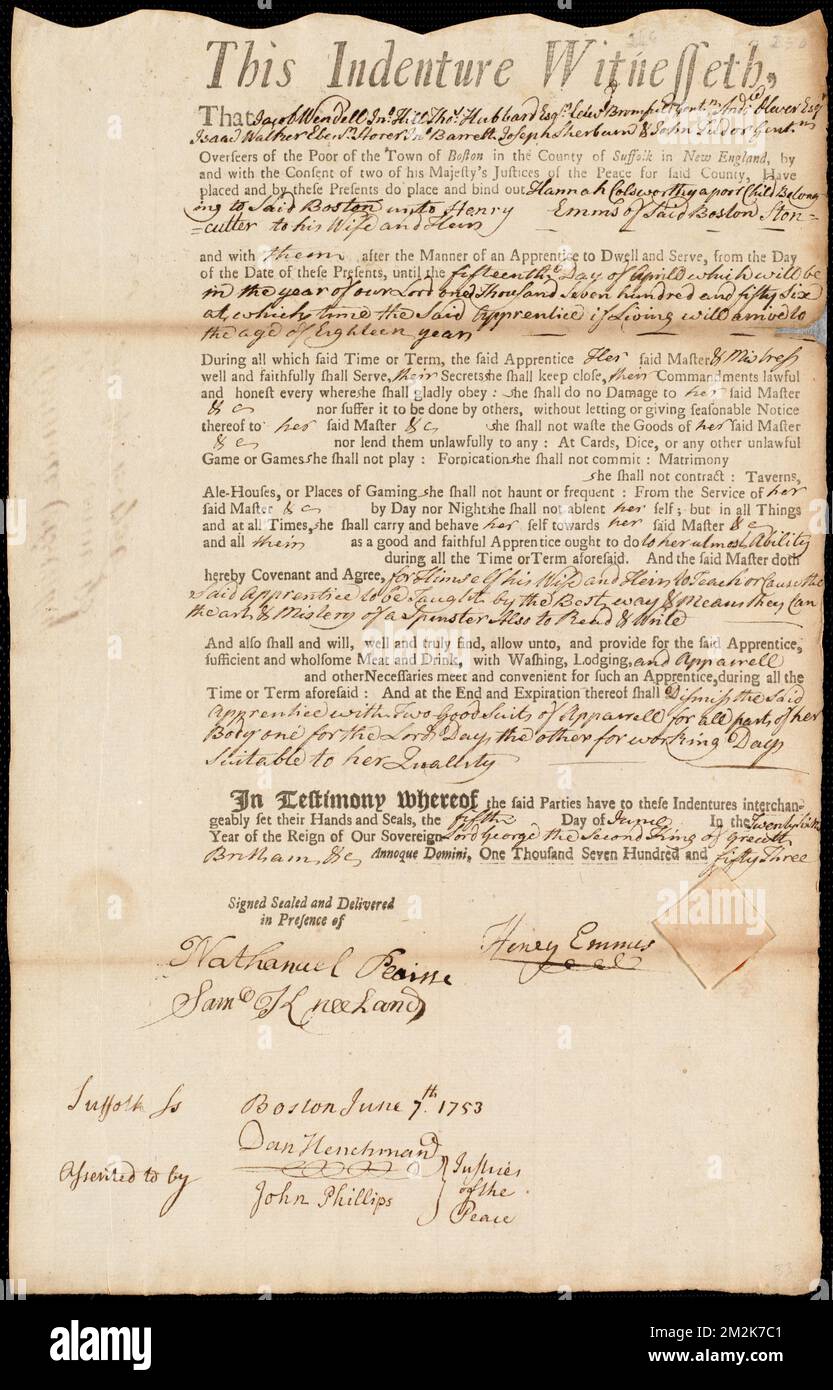 This Indenture Witnesseth,
That Jacob Wendell Jnº Hill Thoˢ Hubbard Esqʳˢ Edwᵈ Bromfield Gentⁿ Andʷ Oliver Esqʳ
Isaac Walker Ebenʳ Storer Jnº Barrett Joseph Sherburn & John Tudor Gentⁿˢ
Overseers of the Poor of the Town of Boston in the County of Suffolk in New England, by
and with the Consent of two of his Majesty's Justices of the Peace for said County, Have
placed and by these Presents do place and bind out Hannah Colsworthy a poor Child Belong
ing to Said Boston unto Henry Emms of Said Boston Ston=
=cutter to his Wife and Heirs
and with them after the Manner of an Apprentice to Dwell and Serve, from the Day
of the Date of these Presents, until the fifteenth Day of Aprild which will be
in the year of our Lord one Thousand Seven hundred and fifty Six
at which time the Said Apprentice if Living will arrive to
the age of Eighteen years
During all which said Time or Term, the said Apprentice Her said Master & Mistress
well and faithfully shall Serve, their Secrets she shall keep close, their Commandments lawful
and honest every where she shall gladly obey : she shall do no Damage to her said Master
& c nor suffer it to be done by others, without letting or giving seasonable Notice
thereof to her said Master & c she shall not waste the Goods of her said Master
& c nor lend them unlawfully to any : At Cards, Dice, or any other unlawful
Game or Games she shall not play : Fornication she shall not commit : Matrimony
she shall not contract : Taverns,
Ale-Houses, or Places of Gaming she shall not haunt or frequent : From the Service of her
said Master & c by Day nor Night she shall not absent her self ; but in all Things
and at all Times, she shall carry and behave her self towards her said Master & c
and all their as a good and faithful Apprentice ought to do to her utmost Ability
during all the Time or Term aforesaid. And the said Master doth
hereby Covenant and Agree, for Himself his Wife and Heirs to Teach or Cause the
Said Apprentice to be Taught by the Best way & Means they Can
the art & Mistery of a Spinster Also to Read & Write
And also shall and will, well and truly find, allow unto, and provide for the said Apprentice,
sufficient and wholsome Meat and Drink, with Washing, Lodging, and Apparell
and other Necessaries meet and convenient for such an Apprentice, during all the
Time or Term aforesaid : And at the End and Expiration thereof shall Dismiss the Said
Apprentice with Two Good Suits of Apparrell for all parts of her
Body one for the Lords Days the other for working Days
Suitable to her Quallity
In Testimony whereof the said Parties have to these Indentures interchan-
geably set their Hands and Seals, the fifth Day of June In the Twenty Sixth
Year of the Reign of Our Sovereign Lord George the Second King of Greatt
Brittain, & c Annoque Domini, One Thousand Seven Hundred and fifty Three
Signed Sealed and Delivered
in Presence of
Henry Emmes
Nathanuel
Samˡ Kneeland
Suffolk Ss Boston June 7.ᵗʰ 1753
Dan Henchman
Assented to by John Phillips Justices
of the
Peace
alamy
Image ID: 2M2K7C1
www.alamy.com